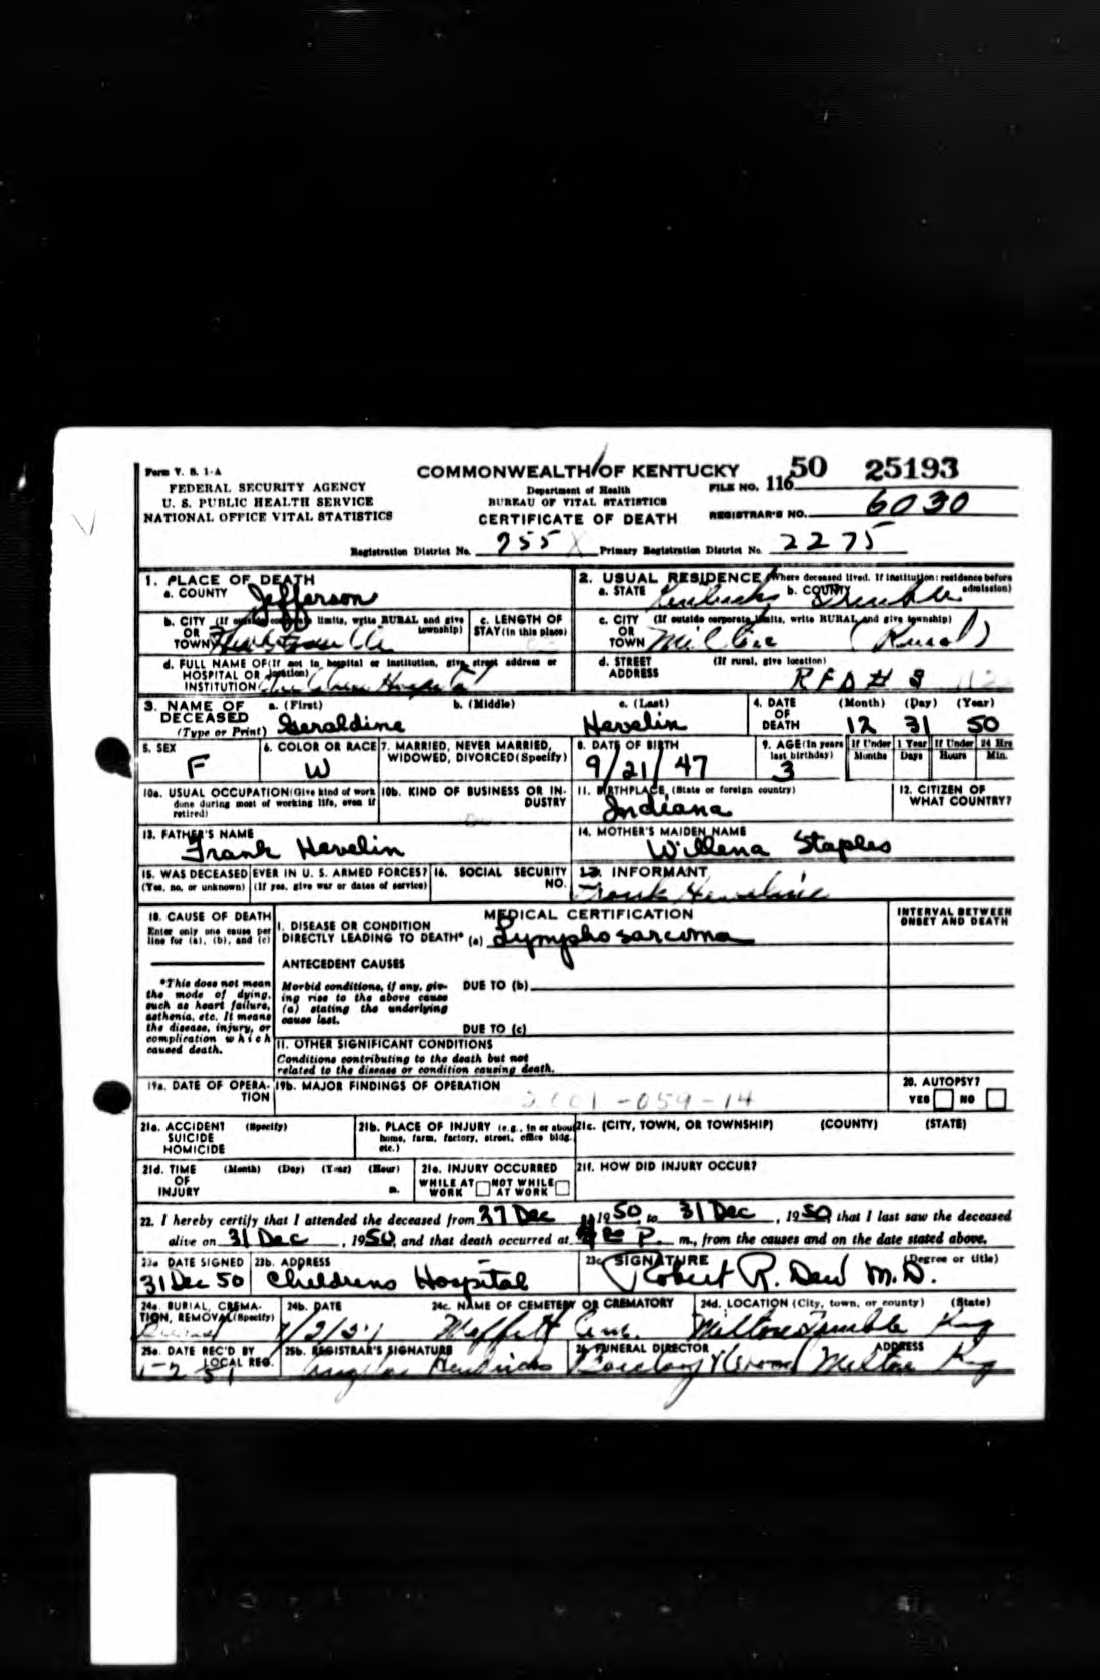 Form V. S. 1-A
FEDERAL SECURITY AGENCY
U. S. PUBLIC HEALTH SERVICE
NATIONAL OFFICE VITAL STATISTICS
COMMONWEALTH OF KENTUCKY
Department of Health
BUREAU OF VITAL STATISTICS
CERTIFICATE OF DEATH
FILE NO. 116 50 25193
REGISTRAR'S NO. 6030
Registration District No. 755 Primary Registration District No. 2275
1. PLACE OF DEATH
a. COUNTY Jefferson
b. CITY (If outside corporate limits, write RURAL and give township)
OR
TOWN
c. LENGTH OF STAY (in this place)
d. FULL NAME OF (If not in hospital or institution, give street address or location)
HOSPITAL OR
INSTITUTION Children Hospital
2. USUAL RESIDENCE (Where deceased lived. If institution: residence before admission)
a. STATE Kentucky b. COUNTY Trimble
c. CITY (If outside corporate limits, write RURAL and give township)
OR
TOWN Milton (Rural)
d. STREET ADDRESS (If rural, give location)
RFD # 3
3. NAME OF DECEASED (Type or Print)
a. (First) Geraldine b. (Middle) c. (Last) Hevelin
4. DATE OF DEATH (Month) (Day) (Year)
12 31 50
5. SEX F
6. COLOR OR RACE W
7. MARRIED, NEVER MARRIED, WIDOWED, DIVORCED (Specify)
8. DATE OF BIRTH 9/21/47
9. AGE (In years last birthday) 3
If Under 1 Year Months Days
If Under 24 Hrs Hours Min.
10a. USUAL OCCUPATION (Give kind of work done during most of working life, even if retired)
10b. KIND OF BUSINESS OR INDUSTRY
11. BIRTHPLACE (State or foreign country) Indiana
12. CITIZEN OF WHAT COUNTRY?
13. FATHER'S NAME Frank Hevelin
14. MOTHER'S MAIDEN NAME Willena Staples
15. WAS DECEASED EVER IN U. S. ARMED FORCES? (Yes, no, or unknown) (If yes, give war or dates of service)
16. SOCIAL SECURITY NO.
17. INFORMANT Frank Heveline
18. CAUSE OF DEATH
Enter only one cause per line for (a), (b), and (c)
*This does not mean the mode of dying, such as heart failure, asthenia, etc. It means the disease, injury, or complication which caused death.
MEDICAL CERTIFICATION
INTERVAL BETWEEN ONSET AND DEATH
I. DISEASE OR CONDITION
DIRECTLY LEADING TO DEATH* (a) Lymphosarcoma
ANTECEDENT CAUSES
Morbid conditions, if any, giving rise to the above cause (a) stating the underlying cause last.
DUE TO (b)
DUE TO (c)
II. OTHER SIGNIFICANT CONDITIONS
Conditions contributing to the death but not related to the disease or condition causing death.
19a. DATE OF OPERATION
19b. MAJOR FINDINGS OF OPERATION
2001-059-14
20. AUTOPSY?
YES NO
21a. ACCIDENT SUICIDE HOMICIDE (Specify)
21b. PLACE OF INJURY (e.g., in or about home, farm, factory, street, office bldg. etc.)
21c. (CITY, TOWN, OR TOWNSHIP) (COUNTY) (STATE)
21d. TIME OF INJURY (Month) (Day) (Year) (Hour) m.
21e. INJURY OCCURRED
WHILE AT WORK NOT WHILE AT WORK
21f. HOW DID INJURY OCCUR?
22. I hereby certify that I attended the deceased from 27 Dec 1950, to 31 Dec, 1950, that I last saw the deceased
alive on 31 Dec, 1950, and that death occurred at P. m., from the causes and on the date stated above.
23a DATE SIGNED 31 Dec 50
23b. ADDRESS Childrens Hospital
23c. SIGNATURE (Degree or title) Robert R. Dew M.D.
24a. BURIAL, CREMATION, REMOVAL (Specify) Burial
24b. DATE 1/2/51
24c. NAME OF CEMETERY OR CREMATORY Moffett Cem.
24d. LOCATION (City, town, or county) (State) Milton Trimble Ky
25a. DATE REC'D BY LOCAL REG. 1-2 51
25b. REGISTRAR'S SIGNATURE Hendricks
26. FUNERAL DIRECTOR ADDRESS Milton Ky